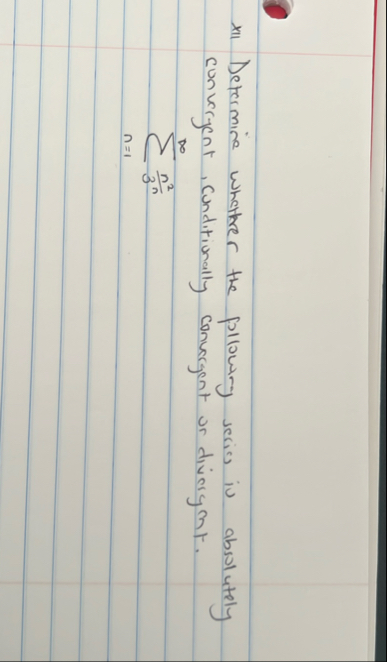 xii Determine whether the following series is absolutely
convergent, conditionally convergent or divergent.
∞
∑ n²/3ⁿ
n=1